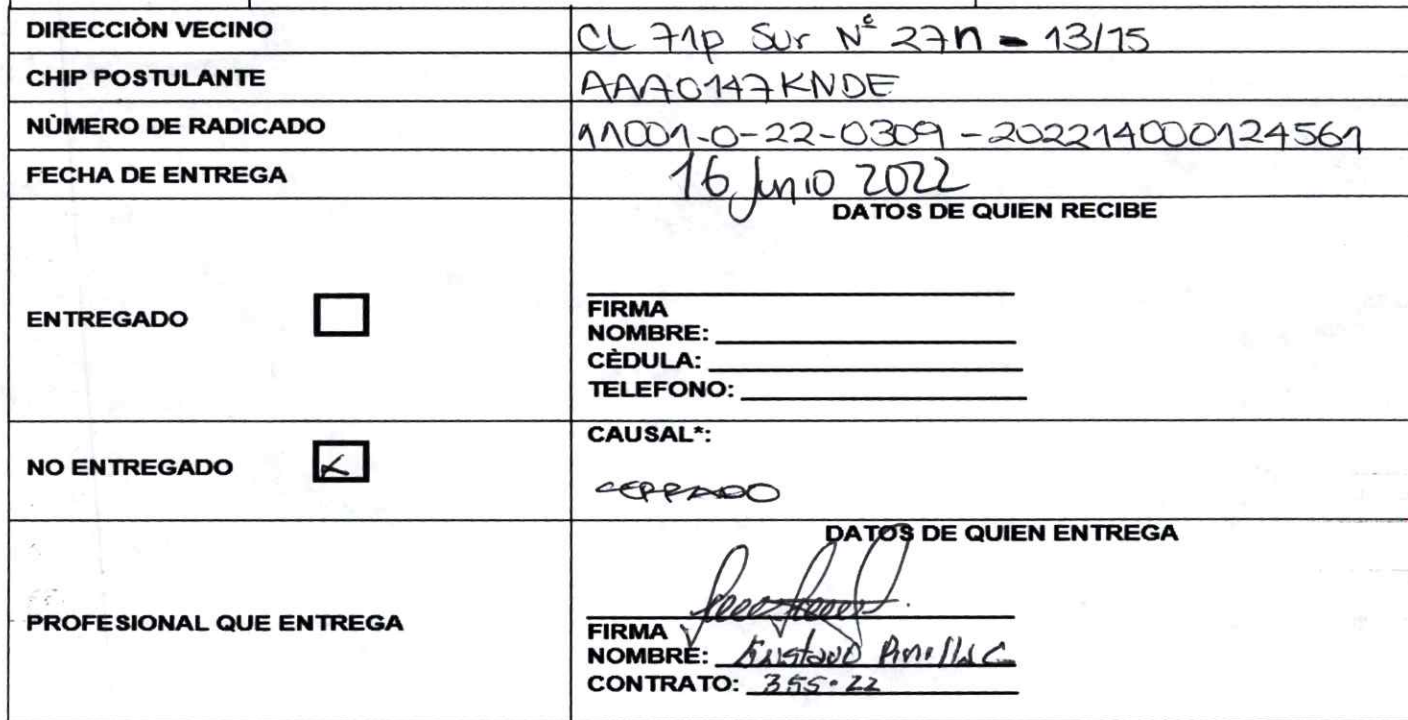 DIRECCIÒN VECINO CL 71p Sur Nº 27n - 13/15
CHIP POSTULANTE AAA0147KNDE
NÙMERO DE RADICADO 11001-0-22-0309 - 202214000124561
FECHA DE ENTREGA 16 Junio 2022
DATOS DE QUIEN RECIBE
ENTREGADO
FIRMA
NOMBRE:
CÈDULA:
TELEFONO:
NO ENTREGADO X
CAUSAL*:
CERRADO
DATOS DE QUIEN ENTREGA
PROFESIONAL QUE ENTREGA
FIRMA
NOMBRE: Gustavo Pinilla C
CONTRATO: 355-22